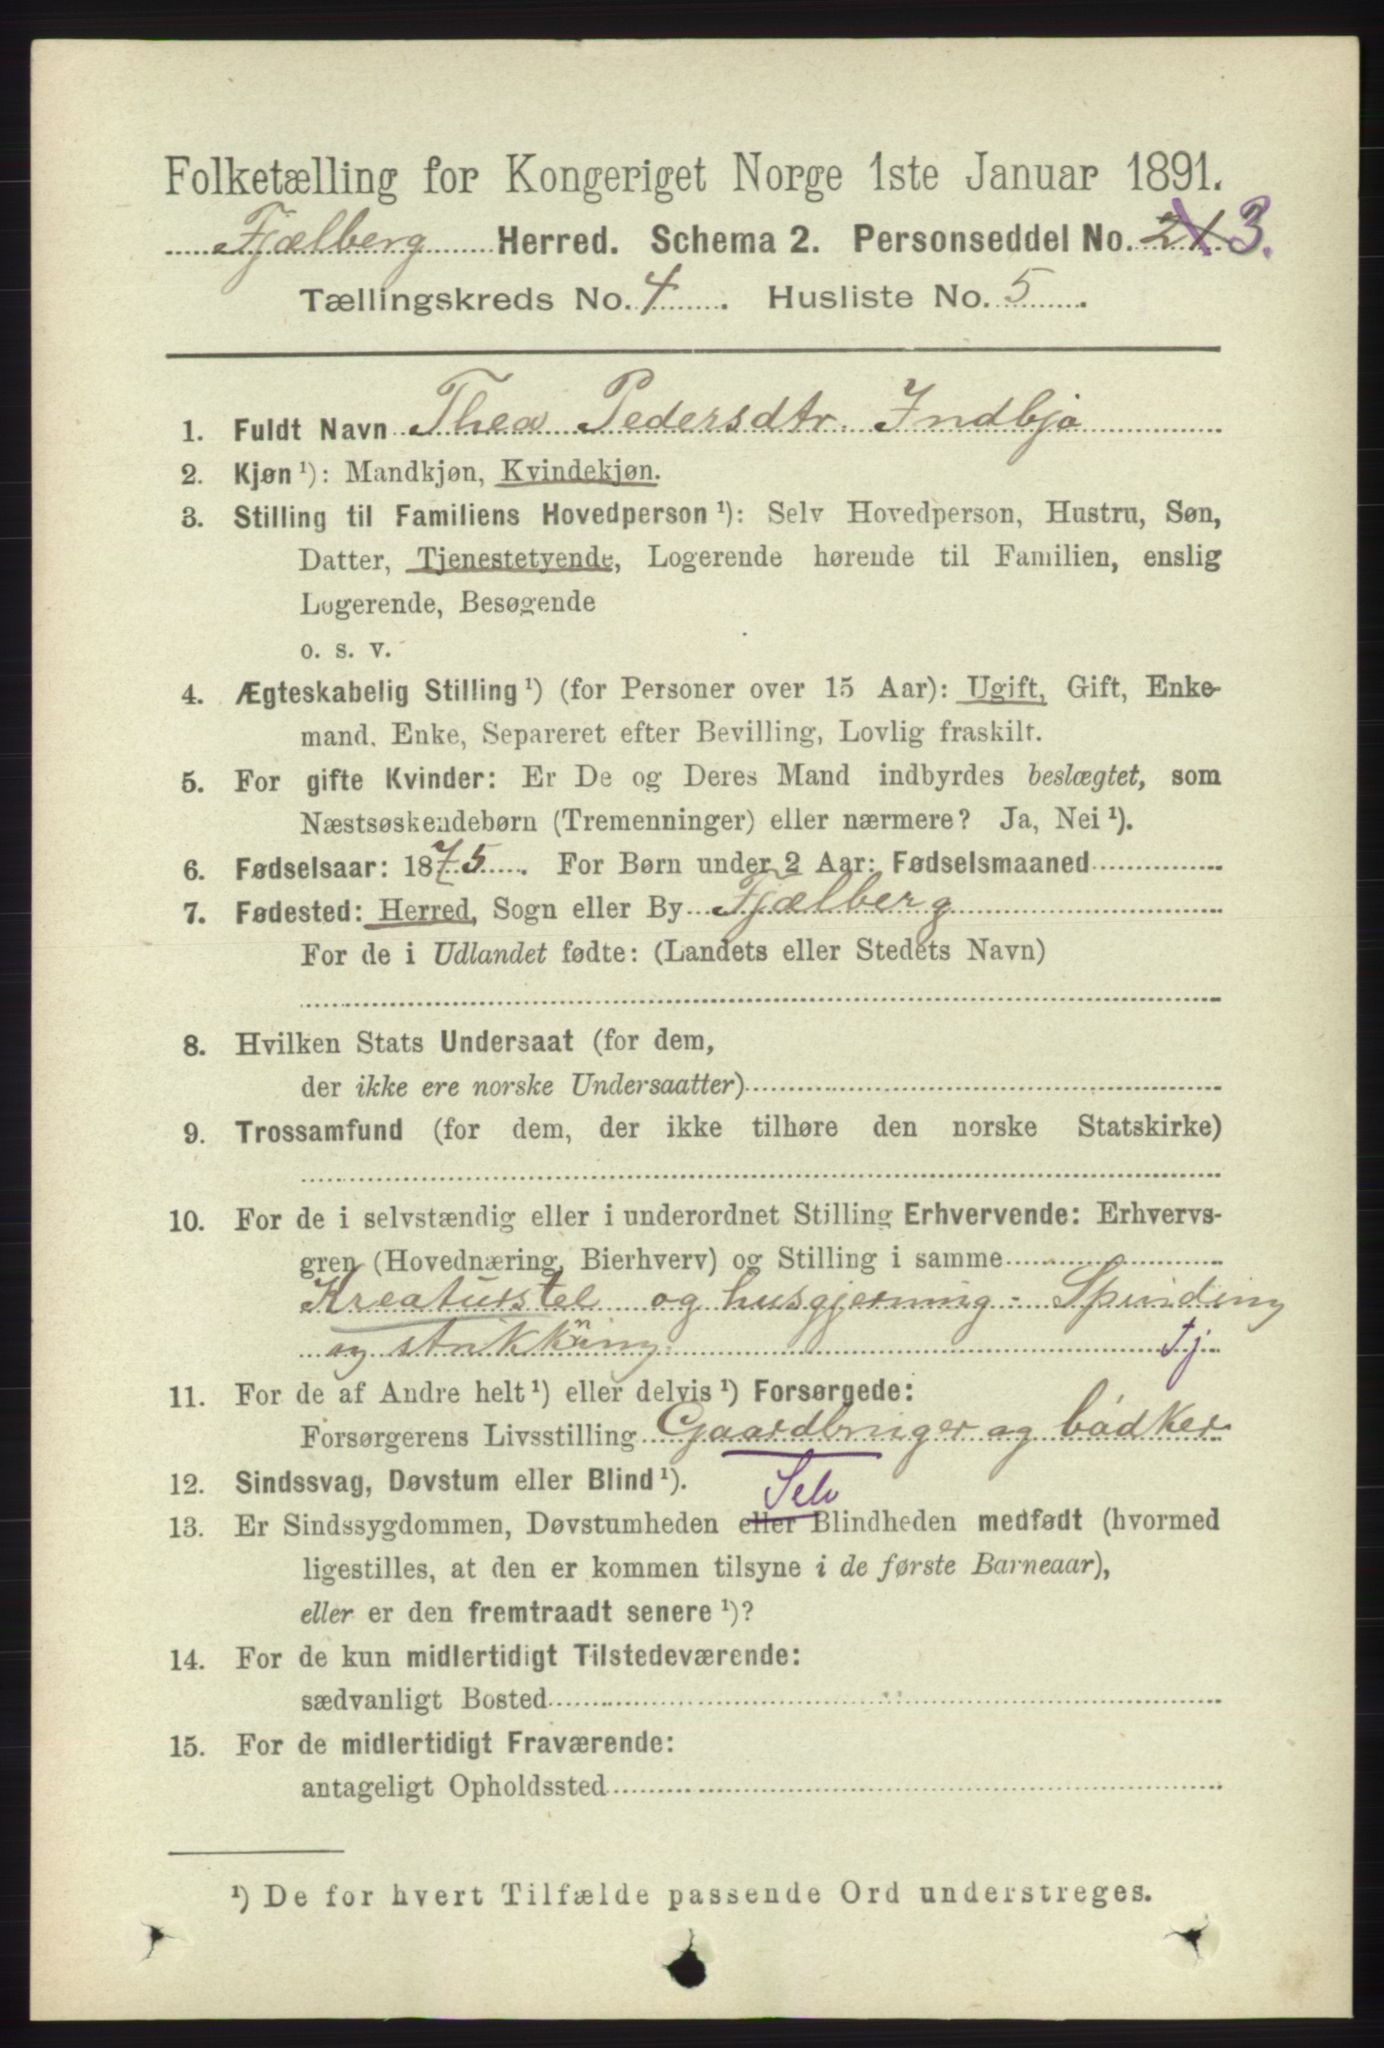 Folketælling for Kongeriget Norge 1ste Januar 1891.
Fjælberg Herred. Schema 2. Personseddel No. 21 3.
Tællingskreds No. 4. Husliste No. 5.
1. Fuldt Navn Thea Pedersdtr. Indbjo
2. Kjøn ¹): Mandkjøn, Kvindekjøn.
3. Stilling til Familiens Hovedperson ¹): Selv Hovedperson, Hustru, Søn,
Datter, Tjenestetyende, Logerende hørende til Familien, enslig
Logerende, Besøgende
o. s. v.
4. Ægteskabelig Stilling ¹) (for Personer over 15 Aar): Ugift, Gift, Enke-
mand, Enke, Separeret efter Bevilling, Lovlig fraskilt.
5. For gifte Kvinder: Er De og Deres Mand indbyrdes beslægtet, som
Næstsøskendebørn (Tremenninger) eller nærmere? Ja, Nei ¹).
6. Fødselsaar: 1875. For Børn under 2 Aar: Fødselsmaaned
7. Fødested: Herred, Sogn eller By Fjælberg
For de i Udlandet fødte: (Landets eller Stedets Navn)
8. Hvilken Stats Undersaat (for dem,
der ikke ere norske Undersaatter)
9. Trossamfund (for dem, der ikke tilhøre den norske Statskirke)
10. For de i selvstændig eller i underordnet Stilling Erhvervende: Erhvervs-
gren (Hovednæring, Bierhverv) og Stilling i samme
Kreaturstel og husgjerning - Spinding
og strikkning tj
11. For de af Andre helt ¹) eller delvis ¹) Forsørgede:
Forsørgerens Livsstilling Gaardbruger og bødker
12. Sindssvag, Døvstum eller Blind ¹). Selv
13. Er Sindssygdommen, Døvstumheden eller Blindheden medfødt (hvormed
ligestilles, at den er kommen tilsyne i de første Barneaar),
eller er den fremtraadt senere ¹)?
14. For de kun midlertidigt Tilstedeværende:
sædvanligt Bosted
15. For de midlertidigt Fraværende:
antageligt Opholdssted
¹) De for hvert Tilfælde passende Ord understreges.